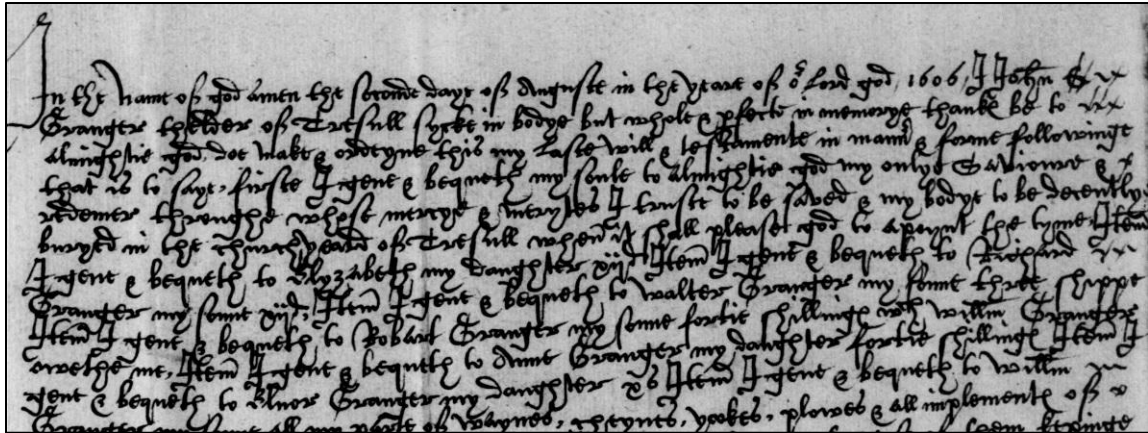 In the Name of god amen the second daye of Auguste in the yeare of or Lord god, 1606, I John
Granger thelder of Tresull sycke in bodye but whole & pfecte in memorye thanks be to
Almightie god, doe make & ordeyne this my Laste will & testamente in mann & forme followinge
that is to saye, firste I geue & bequeth my soule to Almightie god my onlye Saviowre &
redemer throughe whose mercye & merytes I truste to be saved & my bodye to be decently
buryed in the churchyeard of Tresull when it shall please god to apoynt the tyme Itm
I geue & bequeth to Elyzabeth my daughter xijd Itm I geue & bequeth to Richard
Granger my sonne xijd, Itm I geue & bequeth to Walter Granger my sonne three shippe
Itm I geue & bequeth to Robart Granger my sonne fortie shillings wch Willm Granger
owethe me, Itm I geue & bequeth to Anne Granger my daughter fortie shillings Itm I
geue & bequeth to Elnor Granger my daughter xs Itm I geue & bequeth to Willm
Granger my sonne all my parte of Waynes, cheynes, yookes, plowes & all implements of